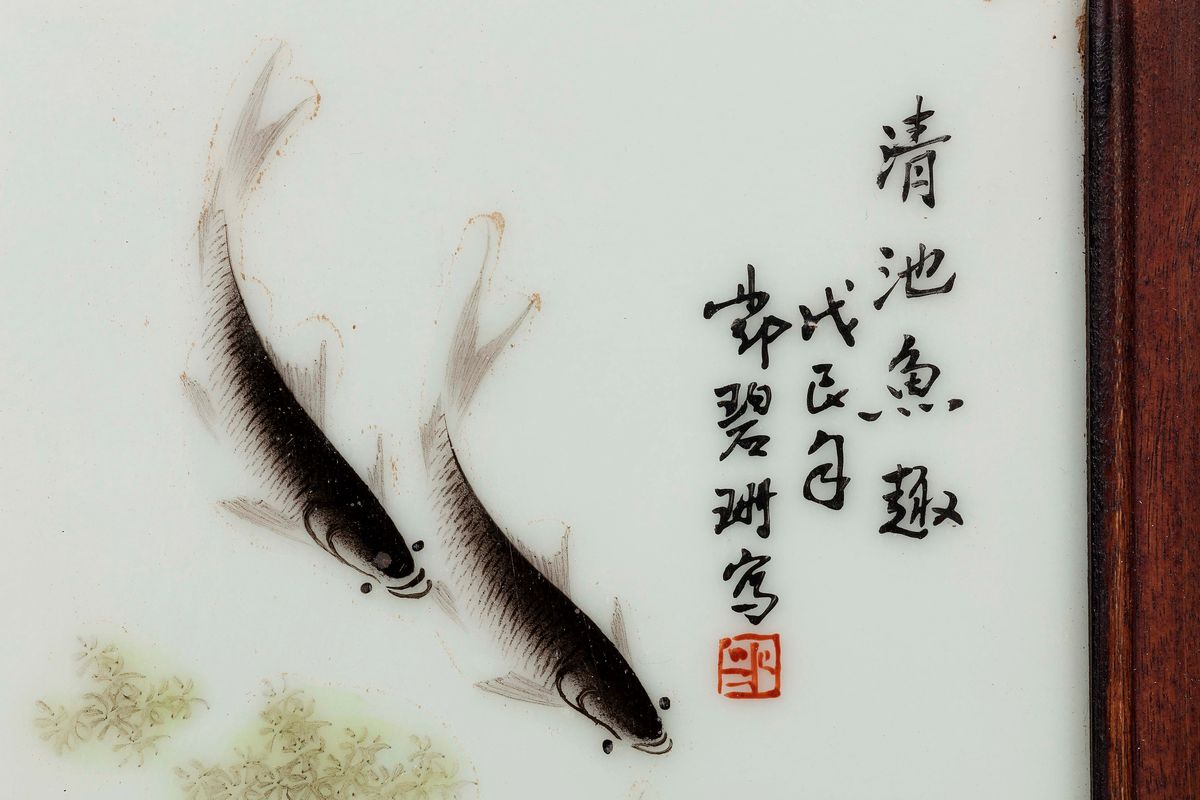 清池魚趣
戊辰年
鄧碧珊寫